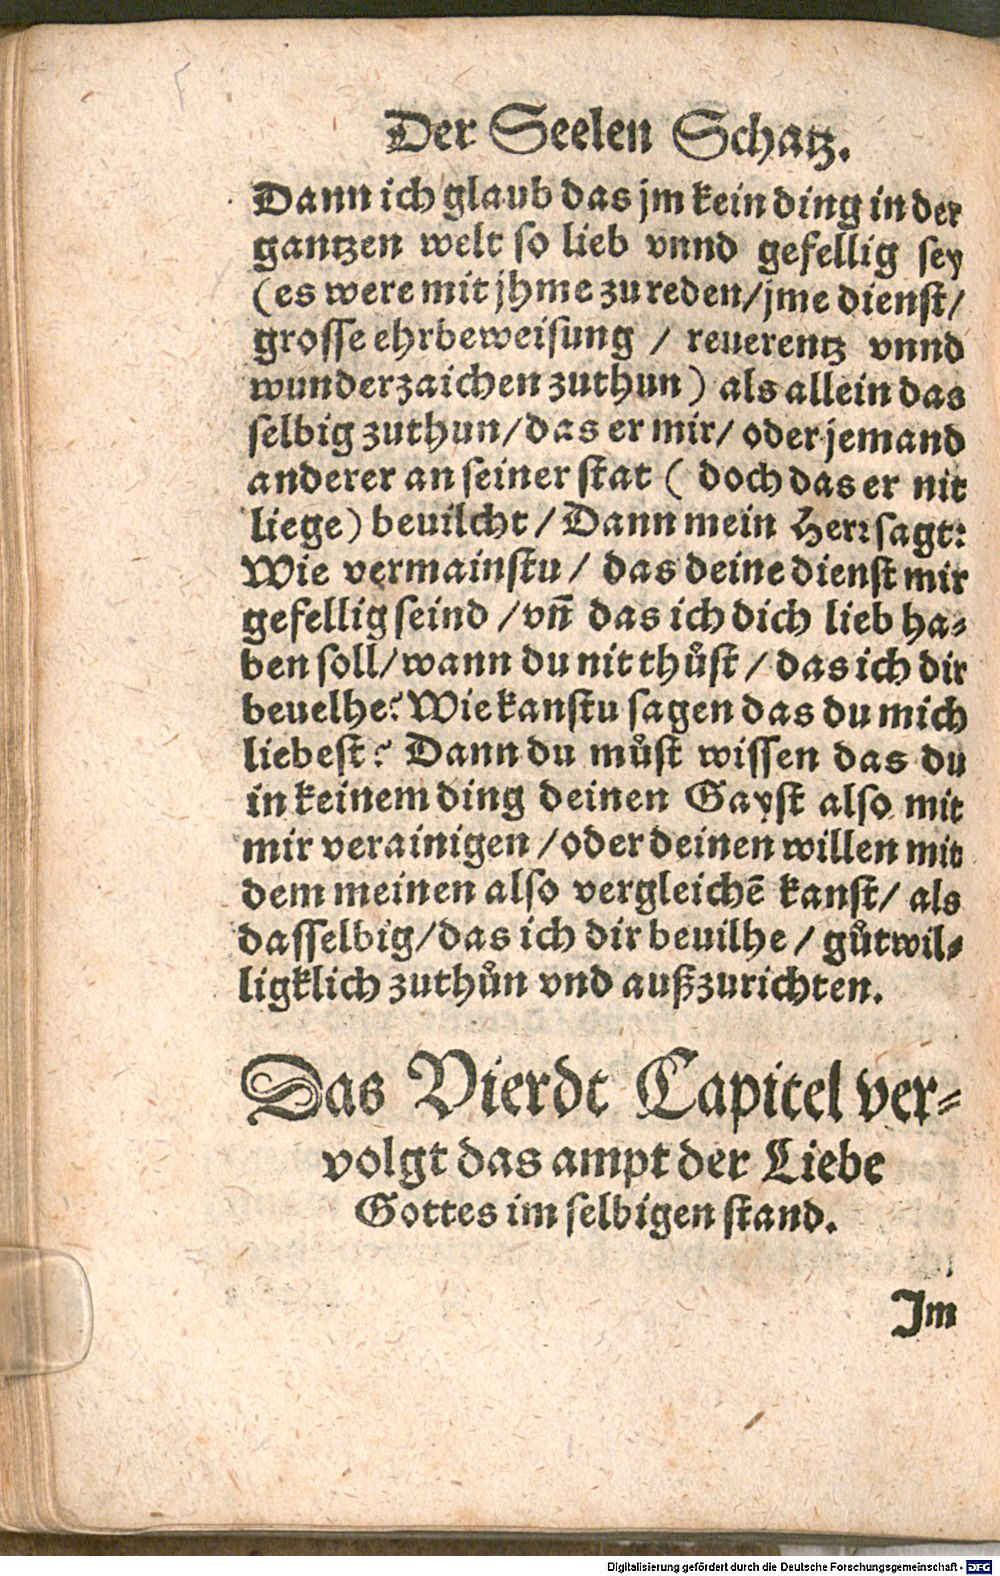 Der Seelen Schatz.
Dann ich glaub das jm kein ding in der
gantzen welt so lieb vnnd gefellig sey
(es were mit jhme zu reden/jme dienst/
grosse ehrbeweisung / reuerentz vnnd
wunderzaichen zuthun) als allein das
selbig zuthun/das er mir/ oder jemand
anderer an seiner stat ( doch das er nit
liege) beuilcht / Dann mein Herr sagt:
Wie vermainstu / das deine dienst mir
gefellig seind /vñ das ich dich lieb ha-
ben soll/wann du nit thůst / das ich dir
beuelhe? Wie kanstu sagen das du mich
liebest? Dann du můst wissen das du
in keinem ding deinen Gayst also mit
mir verainigen /oder deinen willen mit
dem meinen also vergleichē kanst/ als
dasselbig/das ich dir beuilhe / gůtwil-
ligklich zuthůn vnd außzurichten.
Das Vierdt Capitel ver-
volgt das ampt der Liebe
Gottes im selbigen stand.
Im
Digitalisierung gefördert durch die Deutsche Forschungsgemeinschaft - DFG